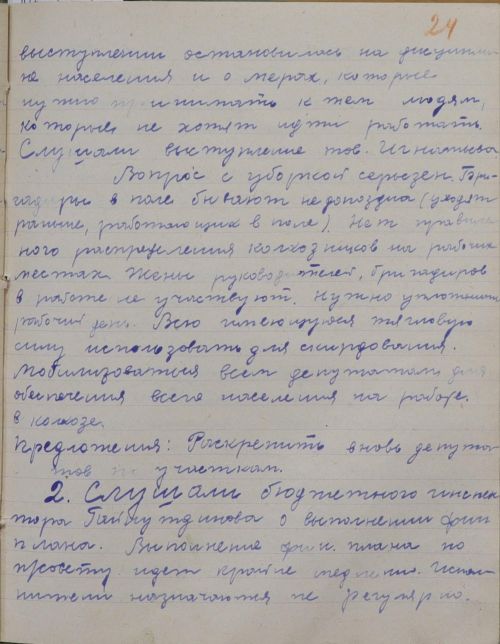 24
выступлении остановилась на дисципли-
не населения и о мерах, которые
нужно принимать к тем людям,
которые не хотят идти работать.
Слушали выступление тов. Игнатьева
Вопрос с уборкой серьезен. Бри-
гадиры в поле бывают не допоздна (уходят
раньше, работающих в поле). Нет правиль-
ного распределения колхозников на рабочих
местах. Жены руководителей, бригадиров
в работе не участвуют. Нужно уплотнить
рабочий день. Всю имеющуюся тягловую
силу использовать для скирдования.
Мобилизоваться всем депутатам для
обеспечения всего населения на работе.
в колхозе.
Предложения: Раскрепить вновь депута-
тов по участкам.
2. Слушали бюджетного инспек-
тора Гайнутдинова о выполнении фин
плана. Выполнение фин. плана по
п/совету идет крайне медленно. Испол-
нители назначаются не регулярно.